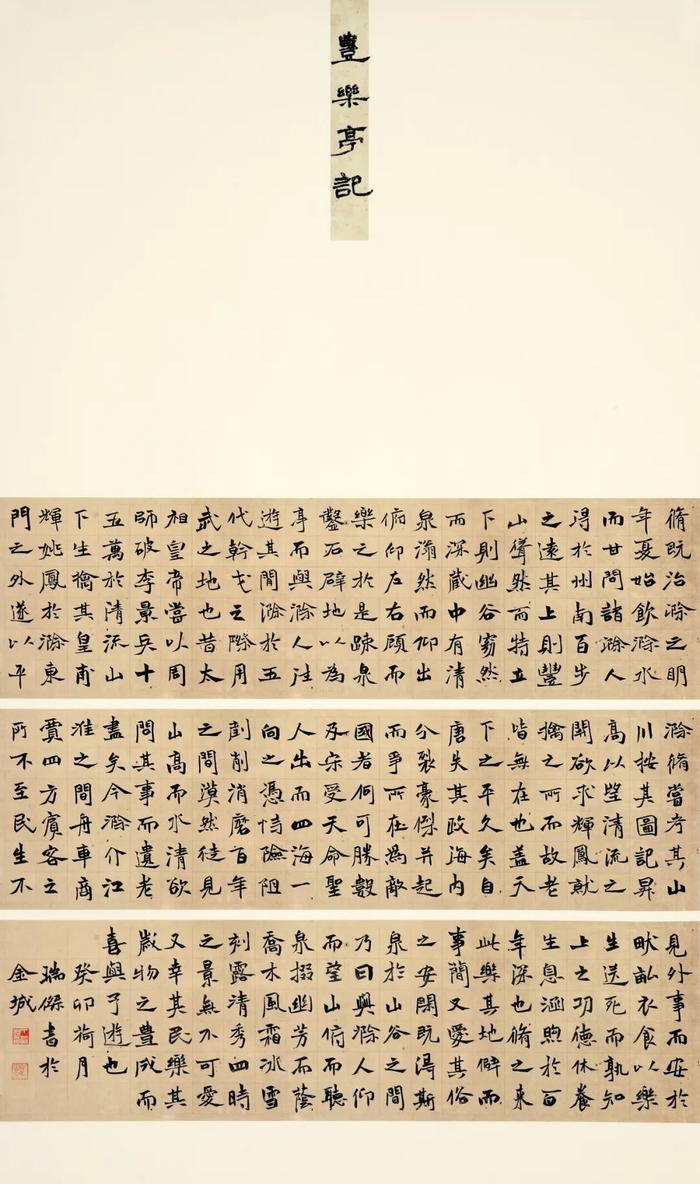 豐樂亭記
脩既治滁之明
年夏始飲滁水
而甘問諸滁人
得於州南百步
之遠其上則豐
山聳然而特立
下則幽谷窈然
而深藏中有清
泉滃然而仰出
俯仰左右顧而
樂之於是疎泉
鑿石辟地以為
亭而與滁人往
遊其間滁於五
代幹戈之際用
武之地也昔太
祖皇帝嘗以周
師破李景兵十
五萬於清流山
下生擒其皇甫
輝姚鳳於滁東
門之外遂以平
滁脩嘗考其山
川按其圖記昇
高以望清流之
關欲求輝鳳就
擒之所而故老
皆無在也蓋天
下之平久矣自
唐失其政海內
分裂豪傑并起
而爭所在為敵
國者何可勝數
及宋受天命聖
人出而四海一
向之憑恃險阻
剷削消磨百年
之間漠然徒見
山高而水清欲
問其事而遺老
盡矣今滁介江
淮之間舟車商
賈四方賓客之
所不至民生不
見外事而安於
畎畝衣食以樂
生送死而孰知
上之功德休養
生息涵煦於百
年深也脩之來
此樂其地僻而
事簡又愛其俗
之安閑既得斯
泉於山谷之間
乃曰與滁人仰
而望山俯而聽
泉掇幽芳而蔭
喬木風霜冰雪
刻露清秀四時
之景無不可愛
又幸其民樂其
歲物之豐成而
喜與予遊也
癸卯荷月
瑞傑書於
金城